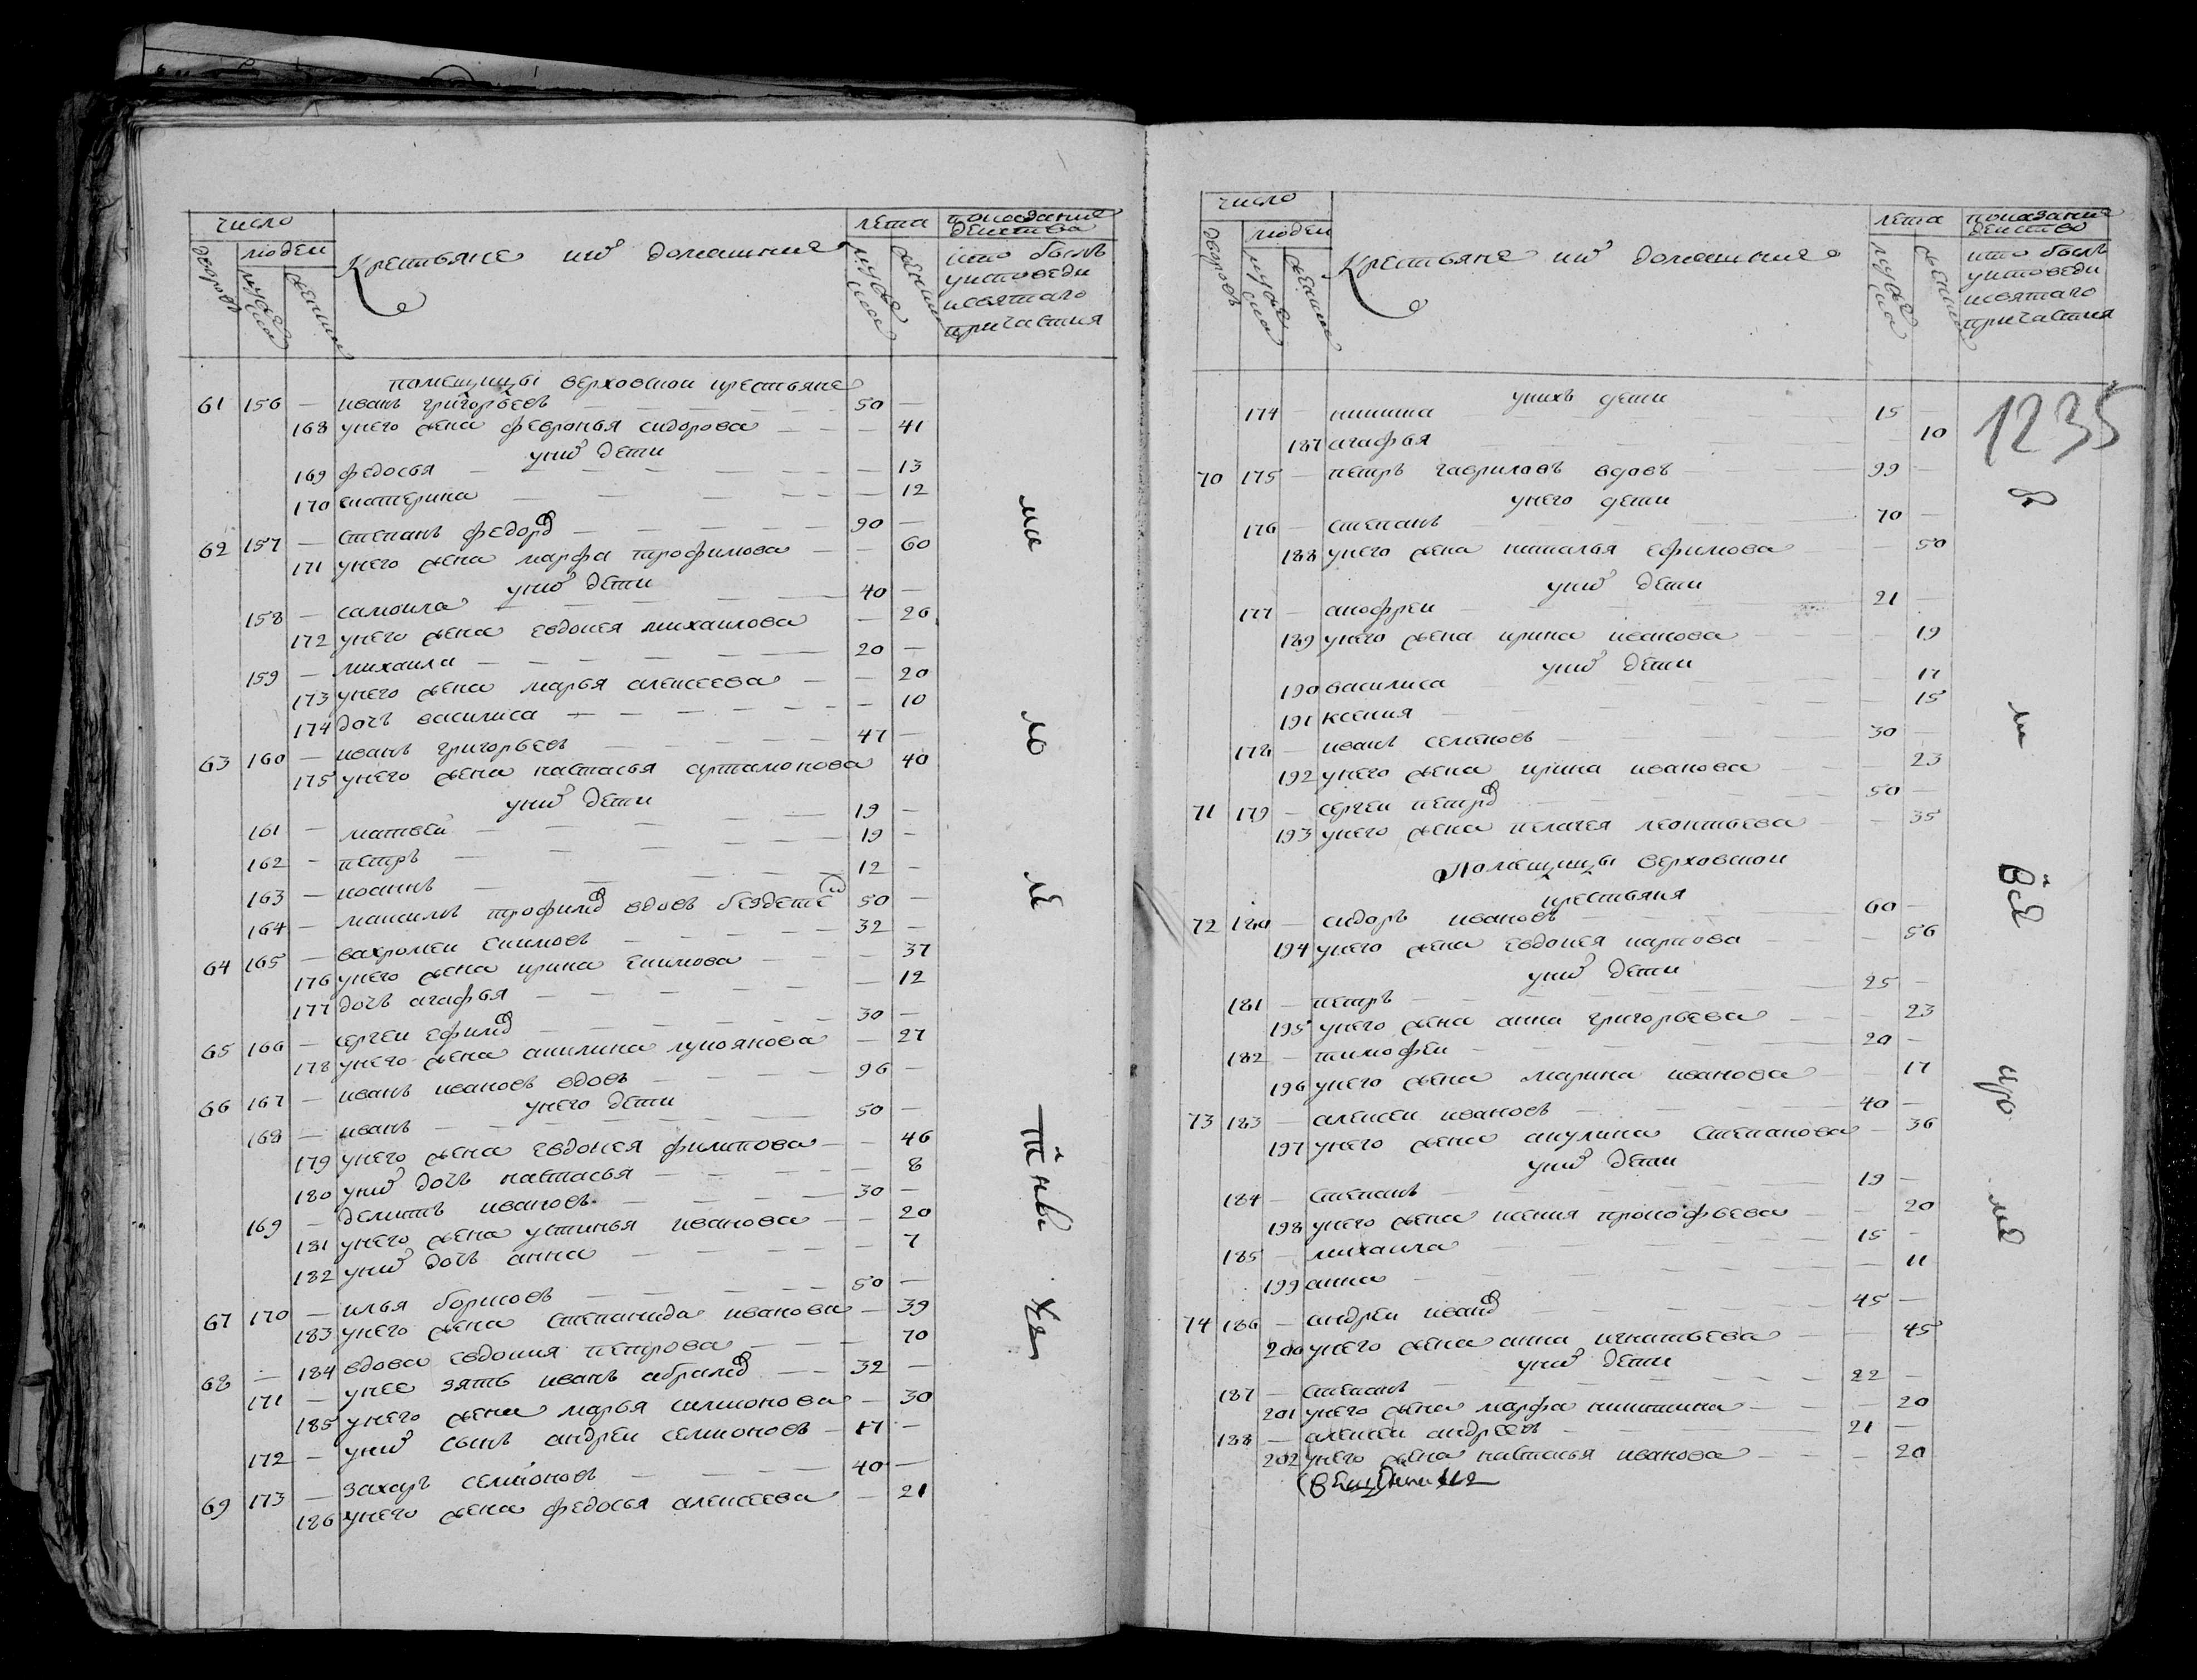 число
людеи
дворовъ
мужеска
женска
Крестьяне ихъ домашние
лета
мужеска
женска
показание
деиства
кто былъ
уисповеди
исвятаго
причастия
помещицы верховскои крестьяне
61 156 — иванъ григорьевъ — 50 —
168 унего жена февронья сидорова — — 41
унихъ дети
169 федосья — — 13
170 екатерина — — 12
62 157 — степанъ федоровъ — 90 —
171 унего жена марфа трофимова — — 60
унихъ дети
158 — самоила — 40 —
172 унего жена евдокея михаилова — 26
159 — михаила — 20 —
173 унего жена марья алексеева — — 20
174 дочь василиса — — 10
63 160 — иванъ григорьевъ — 47 —
175 унего жена настасья артамонова 40
унихъ дети
161 — матвеи — 19 —
162 — петръ — 19 —
163 — иоаннъ — 12 —
164 — максимъ трофимовъ вдовъ бездетенъ 50 —
64 165 — вахромеи екимовъ — 32 —
176 унего жена ирина екимова — — 37
177 дочь агафья — — 12
65 166 — сергеи ефимовъ — 30 —
178 унего жена акилина лукоянова — 27
66 167 — иванъ ивановъ вдовъ — 96 —
унего дети
168 — иванъ — 50 —
179 унего жена евдокея филипова — — 46
180 унихъ дочь настасья — — 8
169 — демитъ ивановъ — 30 —
181 унего жена устинья иванова — — 20
182 унихъ дочь анна — — 7
67 170 — илья борисовъ — 50 —
183 унего жена степанида иванова — 39
68 — 184 вдова евдокия петрова — — 70
171 — унее зять иванъ абрамовъ — 32 —
185 унего жена марья симионова — 30
172 — унихъ сынъ андреи семионовъ — 17 —
69 173 — захаръ семионовъ — 40 —
186 унего жена федосья алексеева — 21
число
людеи
дворовъ
мужеска
женска
Крестьяне ихъ домашние
лета
мужеска
женска
показание
деиство
кто былъ
уисповеди
исвятаго
причастия
1235
унихъ дети
174 — никита 15 —
187 агафья — 10
70 175 — петръ гавриловъ вдовъ — 99 —
унего дети
176 — степанъ — 70 —
188 унего жена наталья ефимова — — 50
унихъ дети
177 — анофреи — 21 —
189 унего жена ирина иванова — 19
унихъ дети
190 василиса — 17
191 ксения — — 15
178 — иванъ семеновъ — 30 —
192 унего жена ирина иванова — — 23
71 179 — сергеи петровъ — 50 —
193 унего жена пелагея леонтьева — — 35
Помещицы верховскои
крестьяня
72 180 — сидоръ ивановъ — 60 —
194 унего жена евдокея карпова — — 56
унихъ дети
181 — петръ — 25 —
195 унего жена анна григорьева — — 23
182 — тимофеи — 20 —
196 унего жена марина иванова — — 17
73 183 — алексеи ивановъ — 40 —
197 унего жена акулина степанова — 36
унихъ дети
184 — степанъ — 19 —
198 унего жена ксения прокофьева — 20
185 — михаила — 15 —
199 анна — — 11
74 186 — андреи ивановъ — 45 —
200 унего жена анна игнатьева — — 45
унихъ дети
187 — степанъ — 22 —
201 унего жена марфа никитина — — 20
188 — алексеи андреевъ — 21 —
202 унего жена настасья иванова — — 20